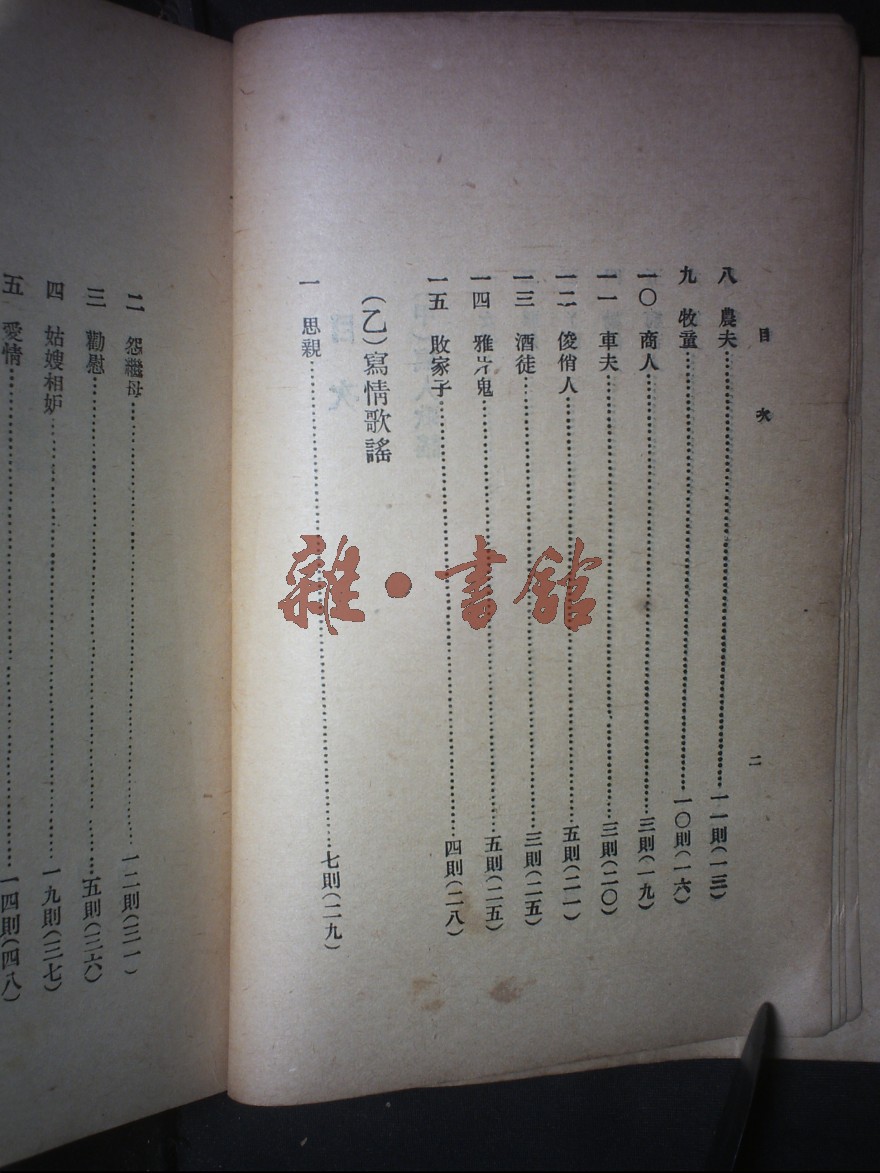 目次
二
八 農夫……一一則(一三)
九 牧童……一〇則(一六)
一〇 商人……三則(一九)
一一 車夫……三則(二〇)
一二 俊俏人……五則(二一)
一三 酒徒……三則(二五)
一四 雅片鬼……五則(二五)
一五 敗家子……四則(二八)
(乙)寫情歌謠
一 思親……七則(二九)
二 怨繼母……一二則(三一)
三 勸慰……五則(三六)
四 姑嫂相妒……一九則(三七)
五 愛情……一四則(四八)
雜·書館